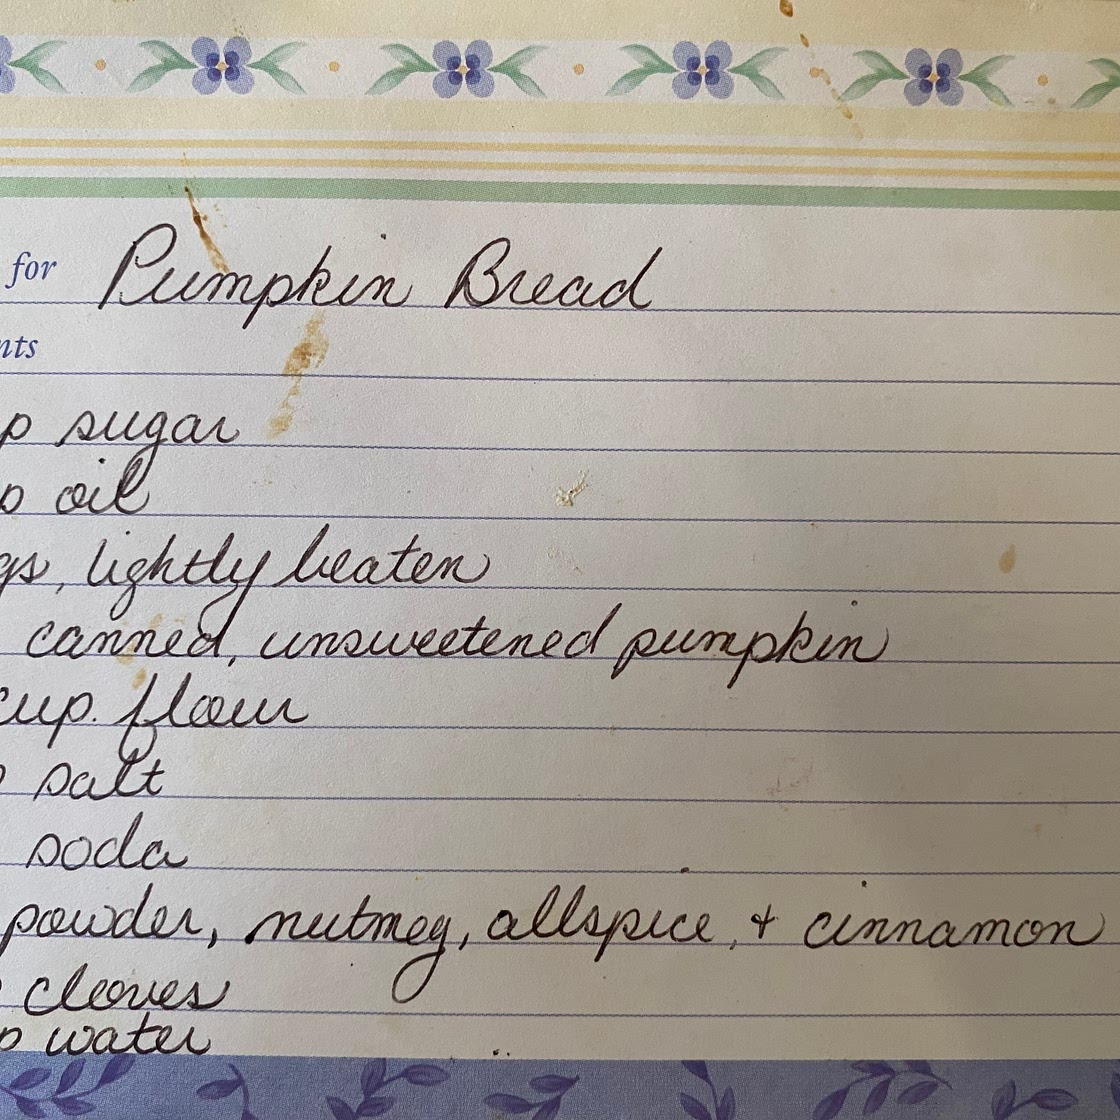 for Pumpkin Bread
nts
p sugar
p oil
gs, lightly beaten
canned, unsweetened pumpkin
cup. flour
salt
soda
powder, nutmeg, allspice, + cinnamon
cloves
p water